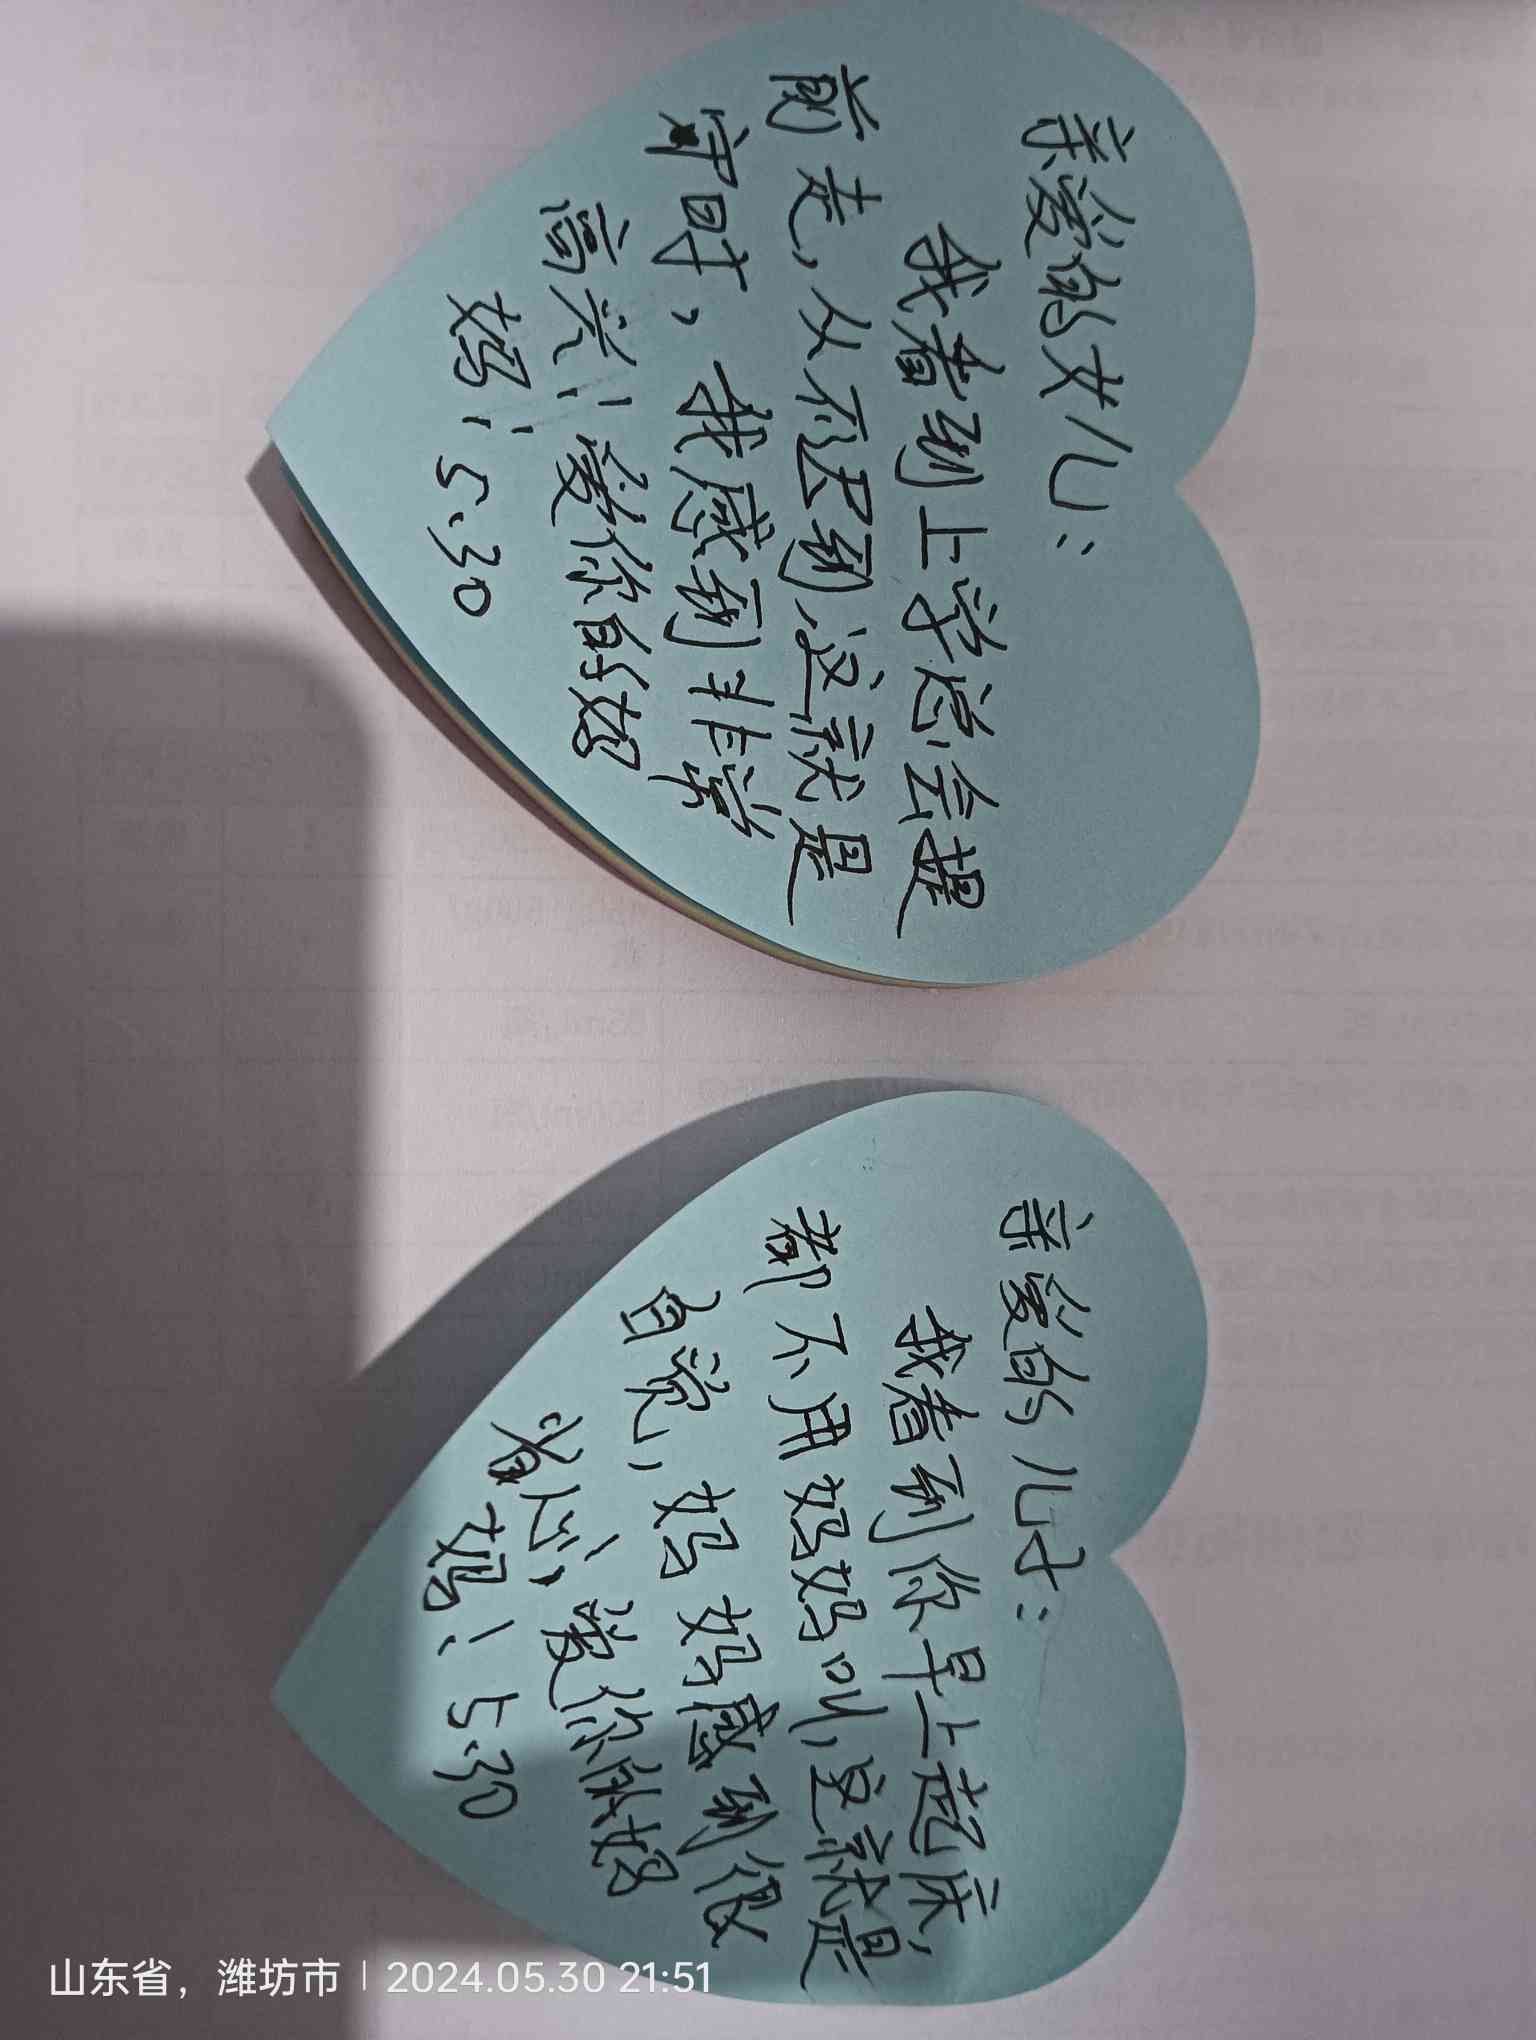 亲爱的女儿：
我看到上学总会提
前走，从不迟到，这就是
守时，我感到非常
高兴！爱你的妈
妈！5.30
亲爱的儿子：
我看到你早上起床，
都不用妈妈叫，这就是
自觉，妈妈感到很
省心，爱你的妈
妈！5.30
山东省，潍坊市 | 2024.05.30 21:51